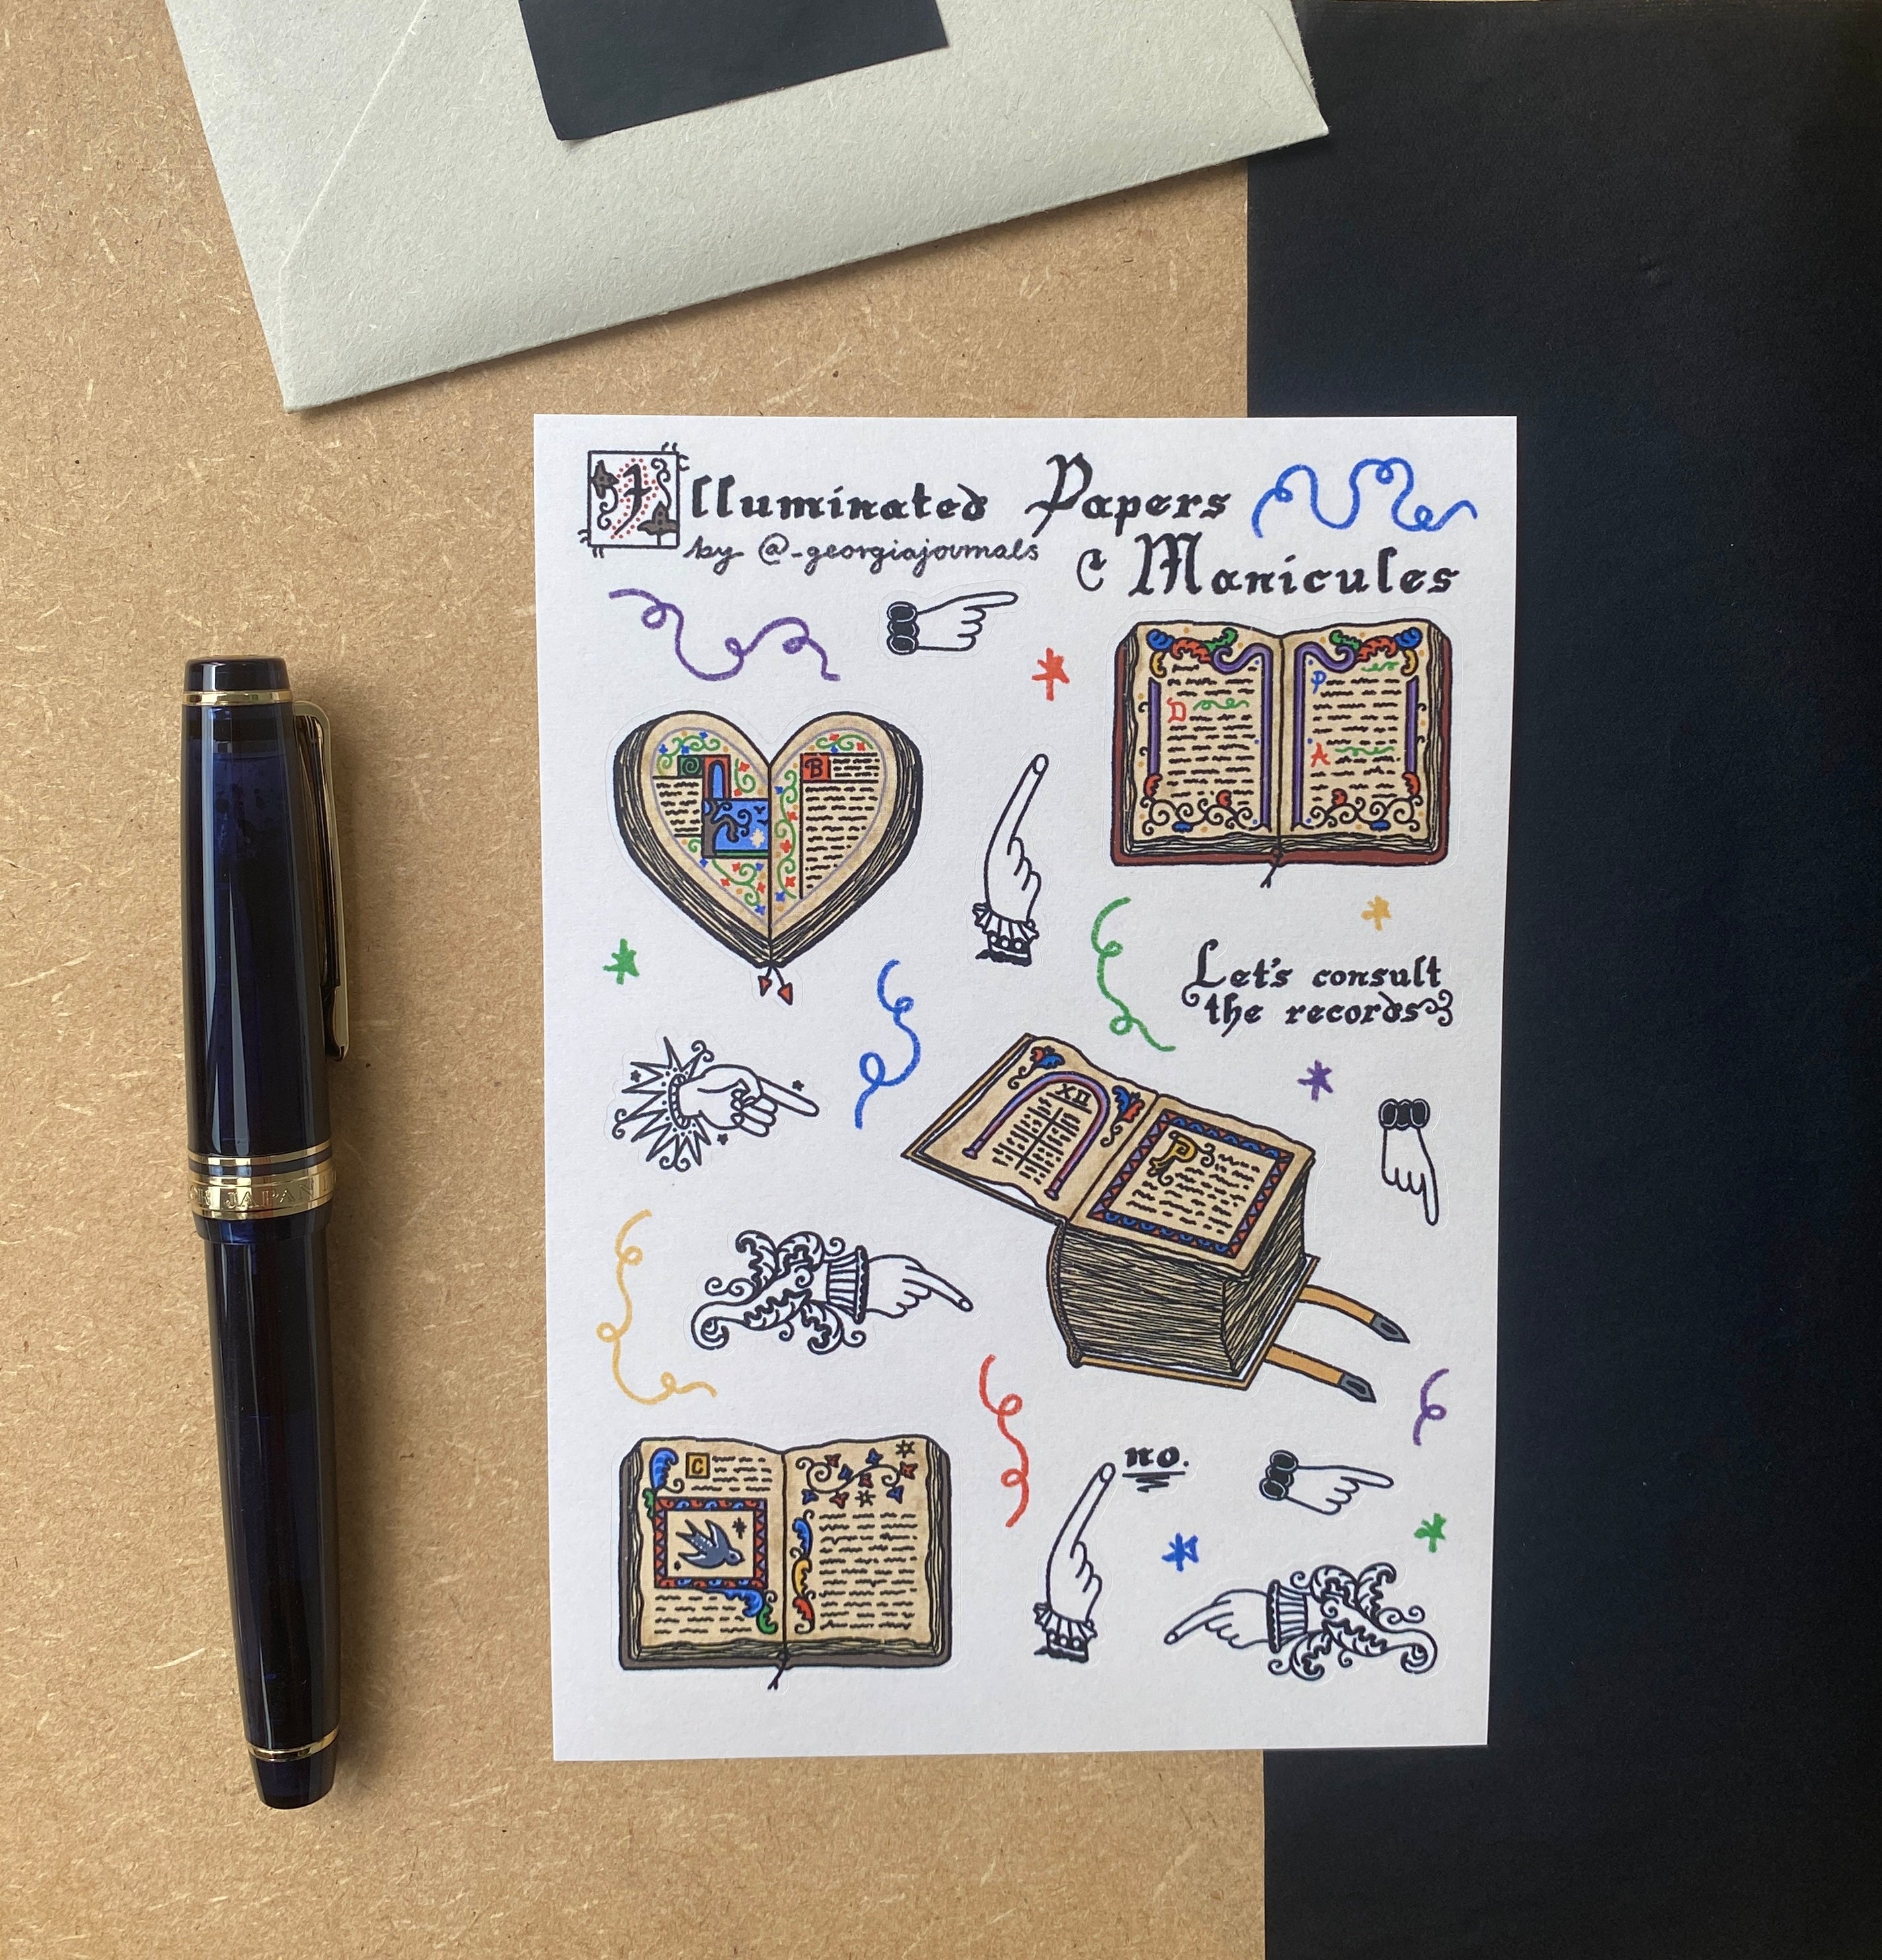 Illuminated Papers
by @_georgiajournals
& Manicules
B
D
P
A
Let's consult
the records
XII
P
C
no.
JAPAN